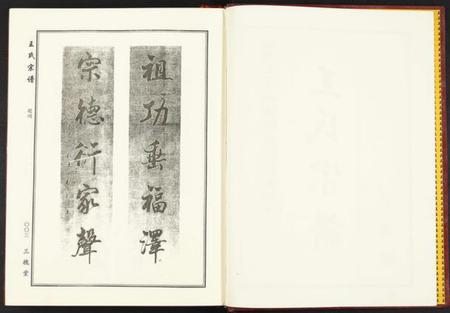 祖功垂福澤
宗德衍家聲
王氏宗谱
〇〇三
三槐堂